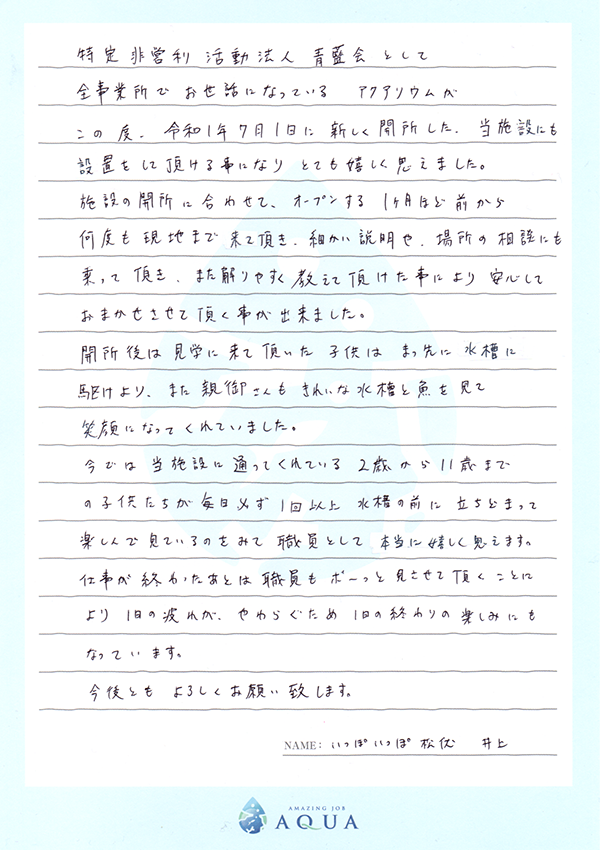 特定非営利活動法人 青藍会として
全事業所で お世話になっている アクアリウムが
この度、令和1年7月1日に 新しく開所した、当施設にも
設置をして頂ける事になり とても嬉しく思えました。
施設の開所に合わせて、オープンする 1ヶ月ほど前から
何度も現地まで来て頂き、細かい説明や、場所の相談にも
乗って頂き、また解りやすく教えて頂けた事により 安心して
おまかせさせて頂く事が出来ました。
開所後は見学に来て頂いた子供は まっ先に 水槽に
駆けより、また親御さんも きれいな水槽と魚を見て
笑顔になってくれていました。
今では 当施設に通ってくれている 2歳から11歳まで
の子供たちが毎日必ず 1回以上 水槽の前に 立ちどまって
楽しんで見ているのをみて 職員として 本当に嬉しく思えます。
仕事が終わったあとは職員も ボーっと見させて頂くことに
より 1日の疲れが、やわらぐため 1日の終わりの楽しみにも
なっています。
今後とも よろしくお願い致します。
NAME: いっぽいっぽ 松伏 井上
AMAZING JOB
AQUA